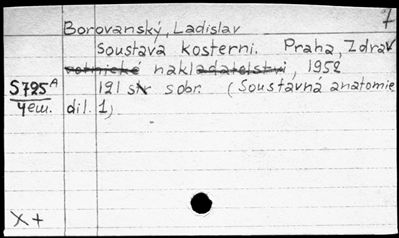 7
Borovanský, Ladislav
Soustava kosterni. Praha, Zdrav
votnické nakladatelstvi, 1952
S725A 191 str sobr. (Soustavná anatomie
4em. dil. 1)
X+